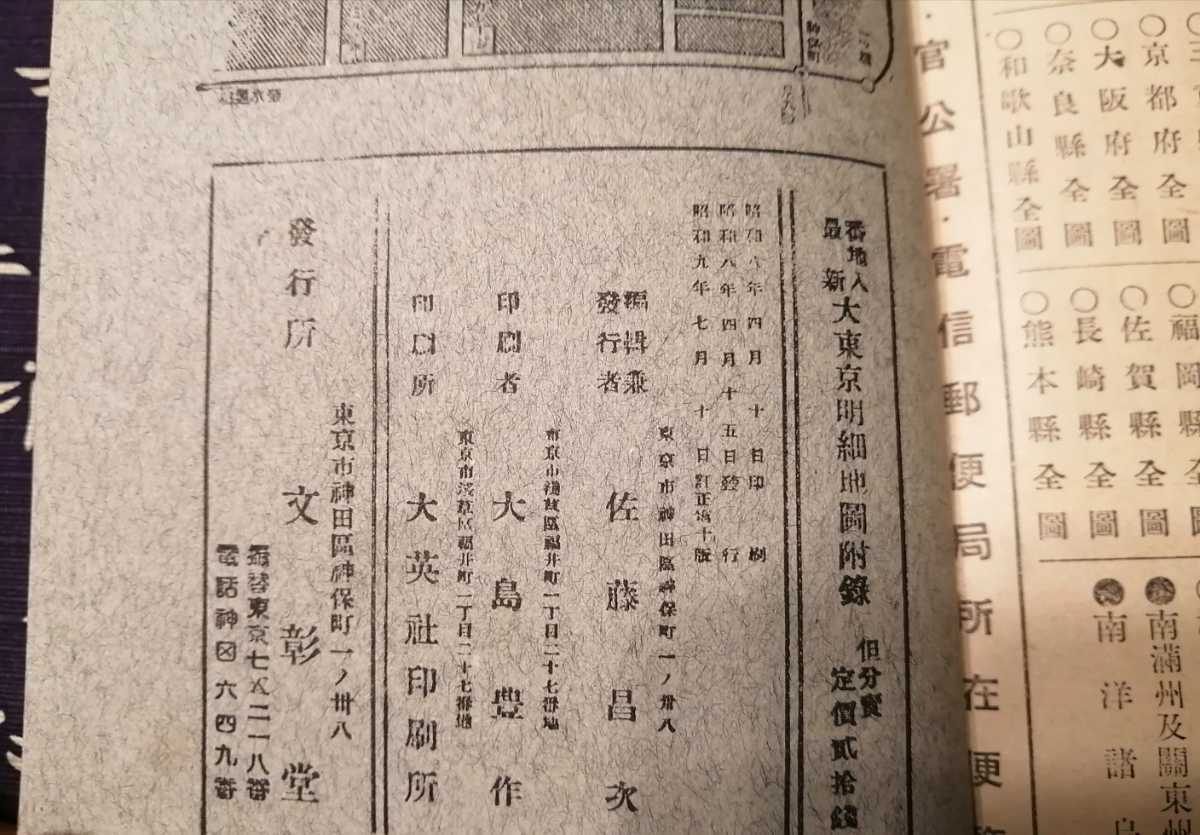 ○京都府全圖
○大阪府全圖
○奈良縣全圖
○和歌山縣全圖
○福岡縣
○佐賀縣全圖
○長崎縣全圖
○熊本縣全圖
南滿州及關東州
南洋諸
官公署・電信郵便局所在便
番地入
最新
大東京明細地圖附錄
但分賣
定價貳拾錢
昭和八年四月十日印刷
昭和八年四月十五日發行
昭和九年七月十日訂正第十版
編輯兼
發行者
東京市神田區神保町一ノ卅八
佐藤昌次
印刷者
東京市淺草區福井町一丁目二十七番地
大島豊作
印刷所
東京市淺草區福井町一丁目二十七番地
大英社印刷所
發行所
東京市神田區神保町一ノ卅八
文彰堂
振替東京七八二一八番
電話神田六四九番